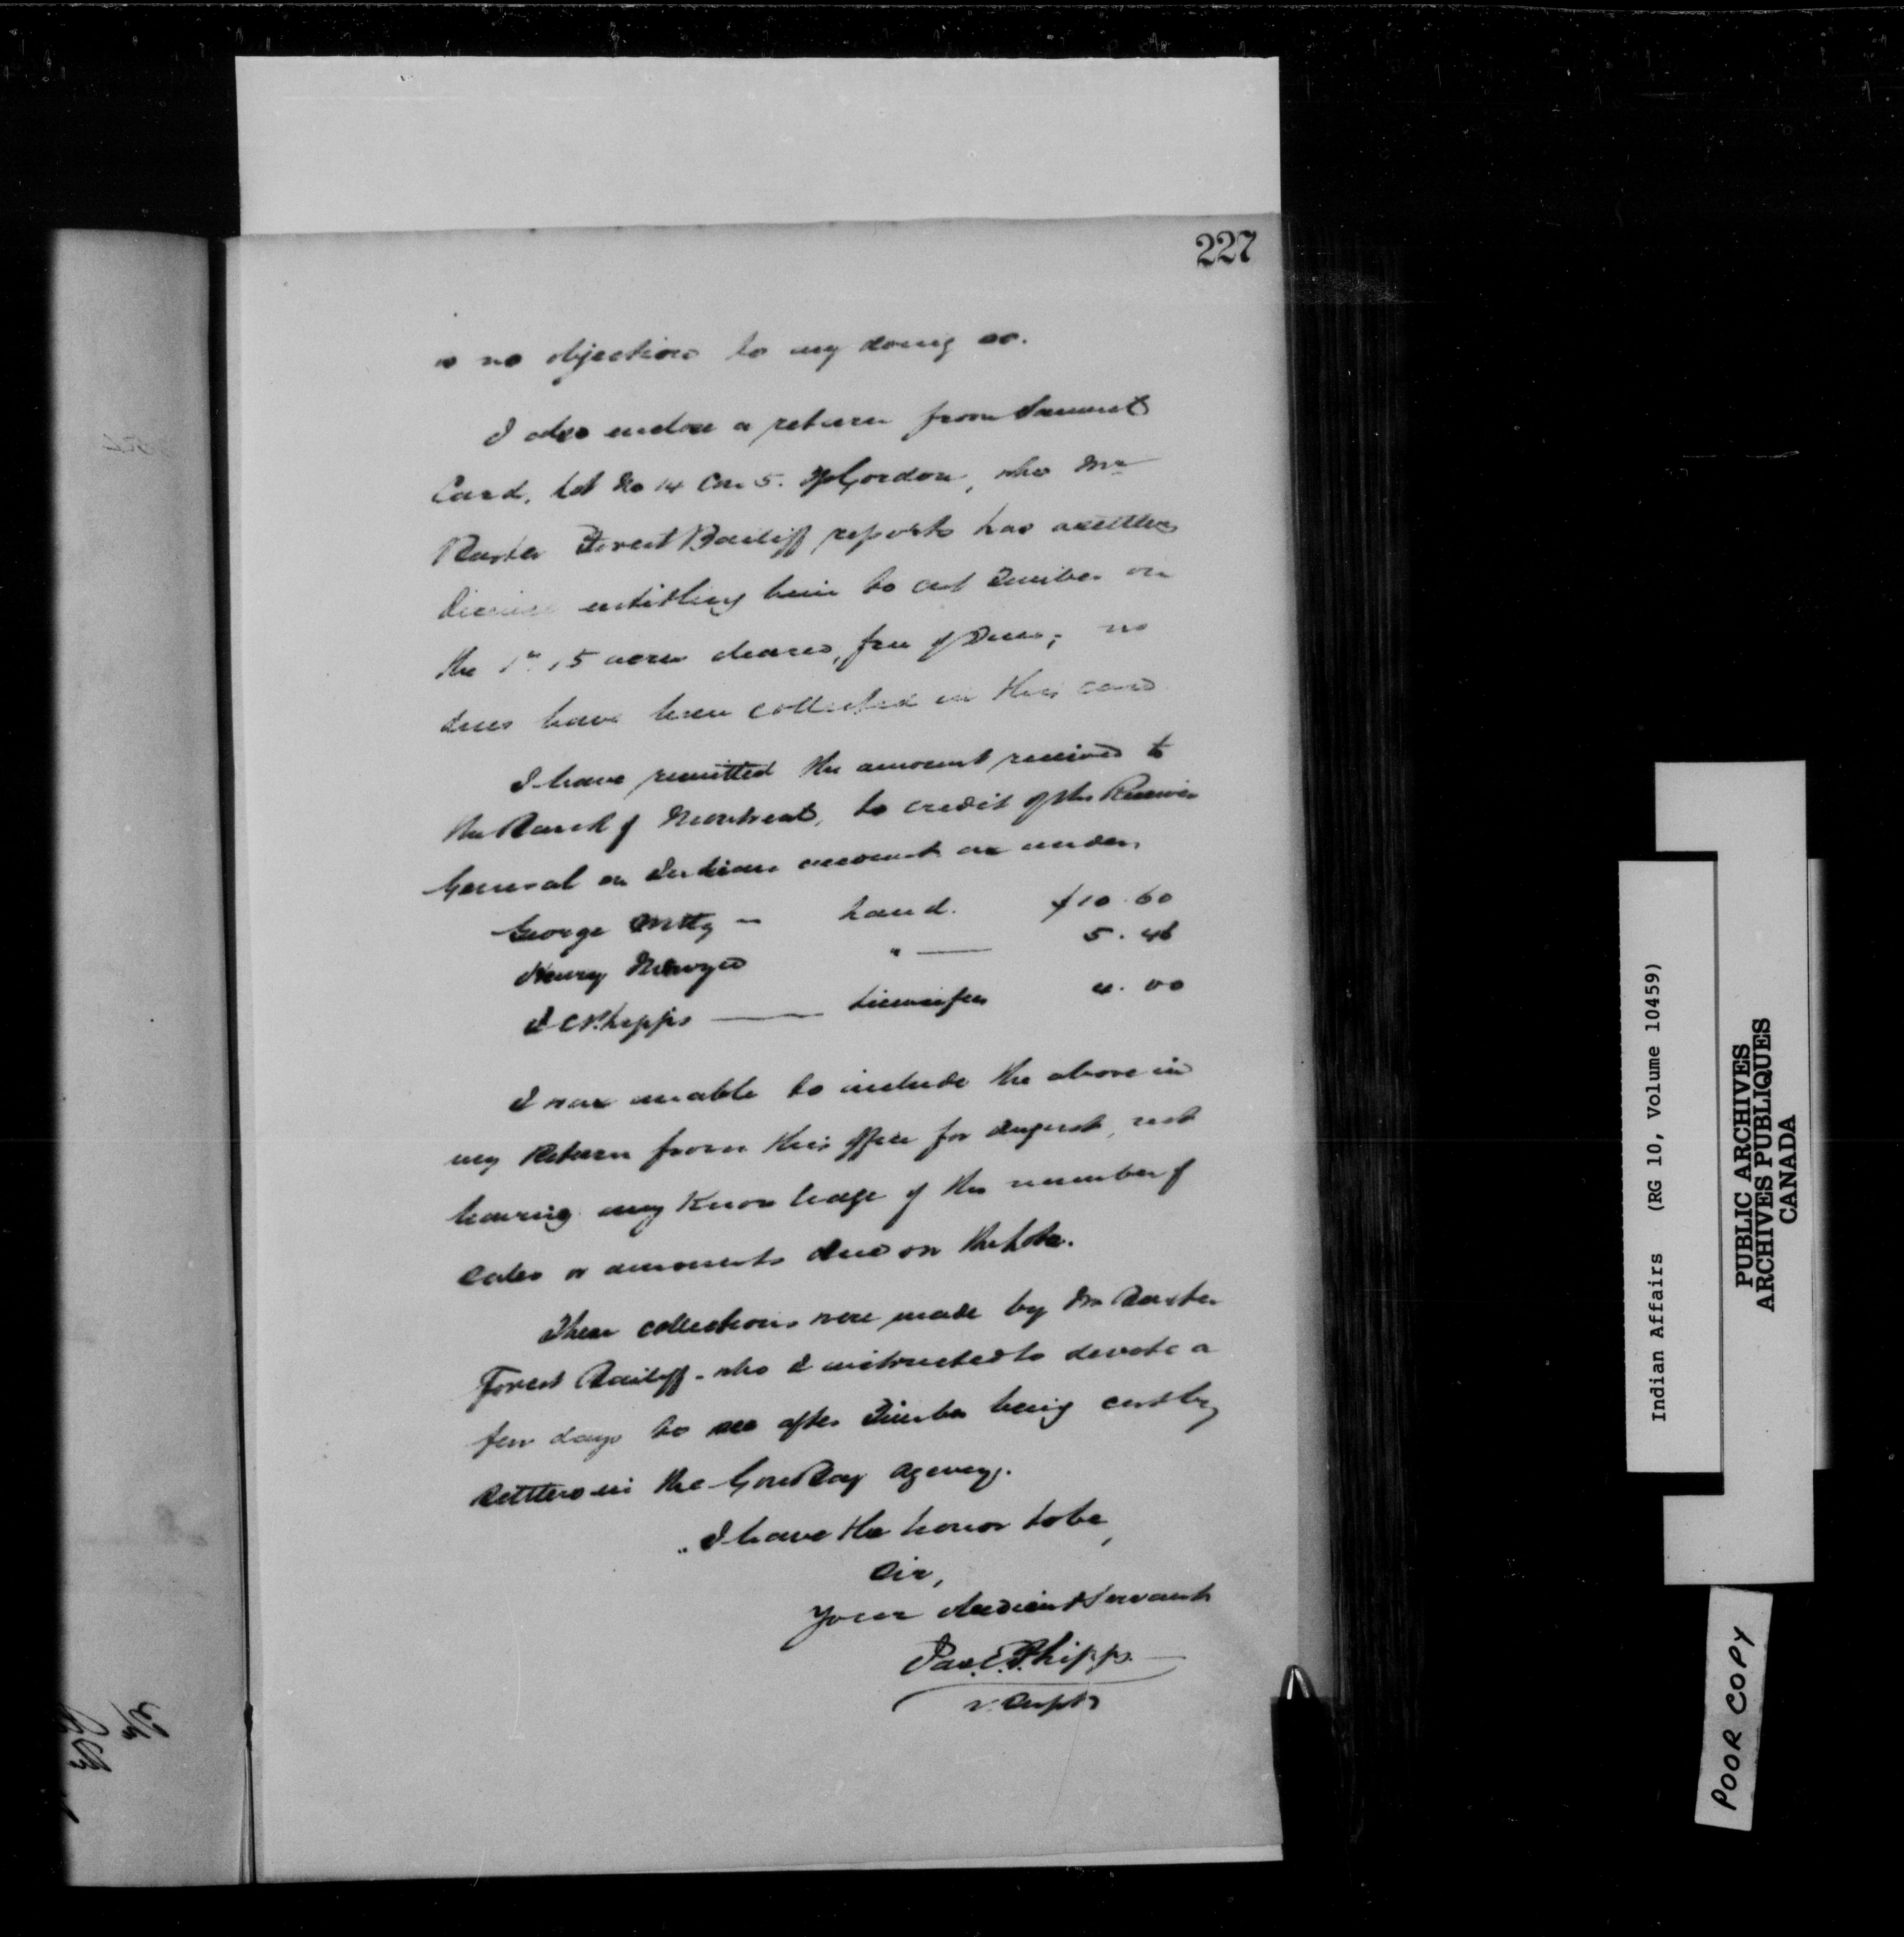 227
is no objection to my doing so.
I also enclose a return from Samuel
Card, Lot No 14 Con 5. Tp Gordon, who Mr
Forest Bailiff reports has a settlers
license entitling him to cut Timber on
the 1st 15 acres cleared, free of Dues; no
dues have been collected in this case
I have remitted the amount received to
the Bank of Montreal, to credit of the Receiver
General on Indian account as under,
George — land. $10.60
Henry " — 5.46
J C Phipps — License fees 4.00
I was unable to include the above in
my Return from this office for August, not
having any Knowledge of the number of
sales or amounts due on the lots.
These collections were made by Mr
Forest Bailiff - who I instructed to devote a
few days to see after Timber being cut by
settlers in the Gore Bay Agency.
I have the honor to be,
Sir,
Your obedient Servant
Jas. C. Phipps.
V. Supt
Indian Affairs (RG 10, Volume 10459)
PUBLIC ARCHIVES
ARCHIVES PUBLIQUES
CANADA
POOR COPY